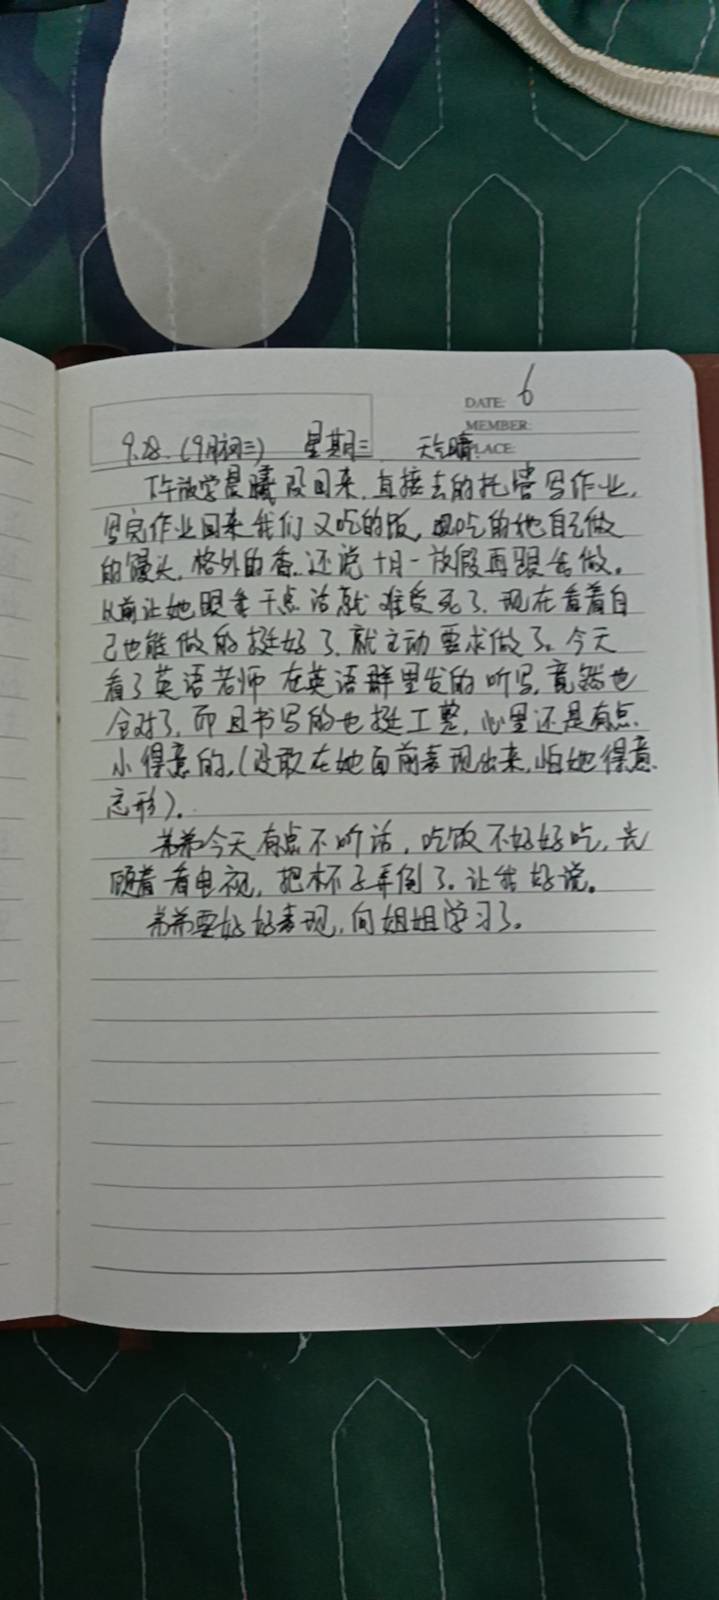 DATE: 6
MEMBER:
PLACE:
9.28.(9月初三) 星期三 天气晴
下午放学晨曦没回来,直接去的托管写作业,
写完作业回来我们又吃的饭,吃的她自己做
的馒头,格外的香.还说十月一放假再跟着做。
从前让她跟着干点活就难受死了,现在看着自
己也能做的挺好了,就主动要求做了。今天
看了英语老师在英语群里发的听写,竟然也
全对了,而且书写的也挺工整,心里还是有点
小得意的,(没敢在她面前表现出来,怕她得意
忘形)。
弟弟今天有点不听话,吃饭不好好吃,光
顾着看电视,把杯子弄倒了。让我好说。
弟弟要好好表现,向姐姐学习了。